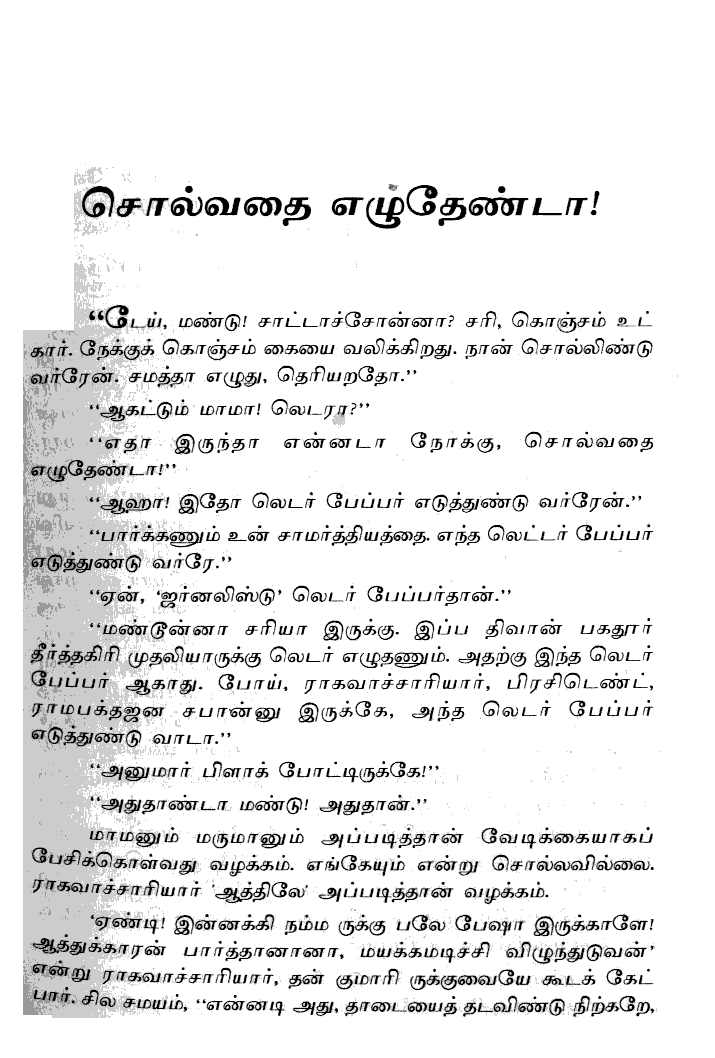 சொல்வதை எழுதேண்டா!
“டேய், மண்டு! சாட்டாச்சோன்னா? சரி, கொஞ்சம் உட்
கார். நேக்குக் கொஞ்சம் கையை வலிக்கிறது. நான் சொல்லிண்டு
வர்ரேன். சமத்தா எழுது, தெரியறதோ.”
“ஆகட்டும் மாமா! லெடரா?”
“எதா இருந்தா என்னடா நோக்கு, சொல்வதை
எழுதேண்டா!”
“ஆஹா! இதோ லெடர் பேப்பர் எடுத்துண்டு வர்ரேன்.”
“பார்க்கணும் உன் சாமர்த்தியத்தை. எந்த லெட்டர் பேப்பர்
எடுத்துண்டு வர்ரே.”
“ஏன், ‘ஜர்னலிஸ்டு’ லெடர் பேப்பர்தான்.”
“மண்டூன்னா சரியா இருக்கு. இப்ப திவான் பகதூர்
தீர்த்தகிரி முதலியாருக்கு லெடர் எழுதணும். அதற்கு இந்த லெடர்
பேப்பர் ஆகாது. போய், ராகவாச்சாரியார், பிரசிடெண்ட்,
ராமபக்தஜன சபான்னு இருக்கே, அந்த லெடர் பேப்பர்
எடுத்துண்டு வாடா.”
“அனுமார் பிளாக் போட்டிருக்கே!”
“அதுதாண்டா மண்டு! அதுதான்.”
மாமனும் மருமானும் அப்படித்தான் வேடிக்கையாகப்
பேசிக்கொள்வது வழக்கம். எங்கேயும் என்று சொல்லவில்லை.
ராகவாச்சாரியார் ‘ஆத்திலே’ அப்படித்தான் வழக்கம்.
‘ஏண்டி! இன்னக்கி நம்ம ருக்கு பலே பேஷா இருக்காளே!
ஆத்துக்காரன் பார்த்தானானா, மயக்கமடிச்சி விழுந்துடுவன்’
என்று ராகவாச்சாரியார், தன் குமாரி ருக்குவையே கூடக் கேட்
பார். சில சமயம், “என்னடி அது, தாடையைத் தடவிண்டு நிற்கறே,